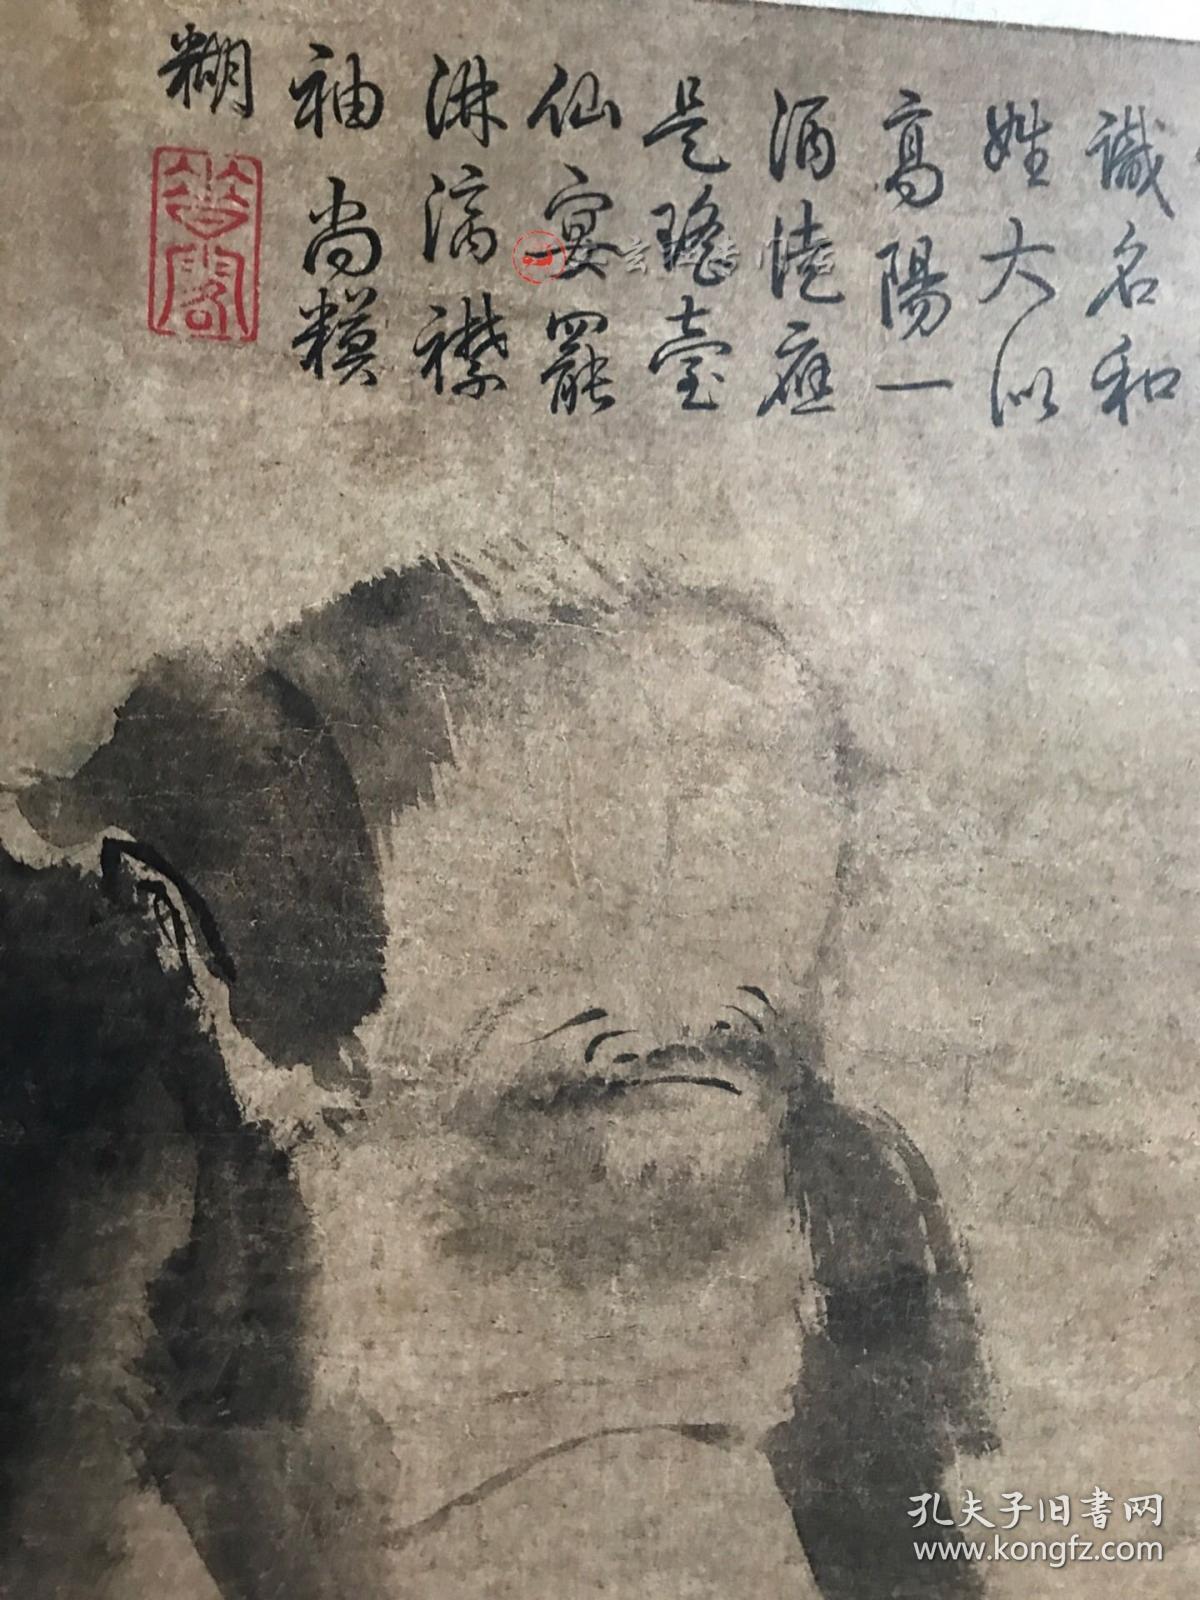 識名和
姓大似
高陽一
酒徒應
是瑤臺
仙宴罷
淋漓襟
袖尚糢
糊
孔夫子旧书网
www.kongfz.com